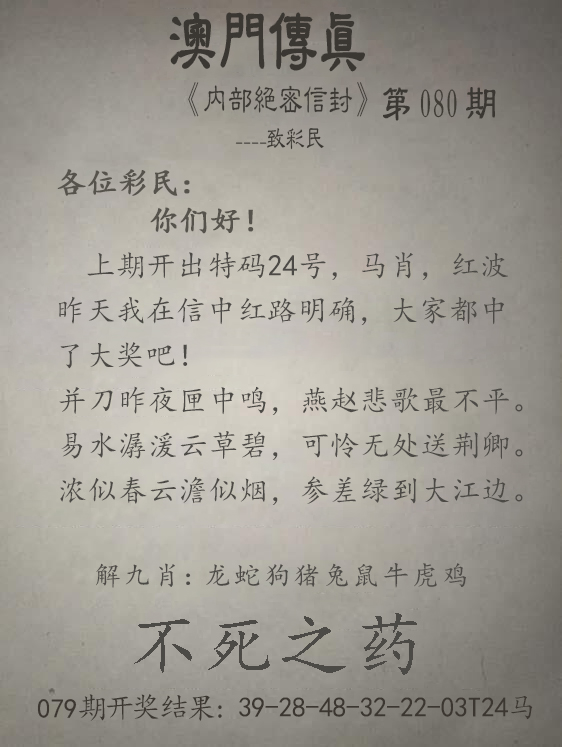 澳門傳真
《内部絕密信封》第080期
----致彩民
各位彩民：
你们好！
上期开出特码24号，马肖，红波
昨天我在信中红路明确，大家都中
了大奖吧！
并刀昨夜匣中鸣，燕赵悲歌最不平。
易水潺湲云草碧，可怜无处送荆卿。
浓似春云澹似烟，参差绿到大江边。
解九肖：龙蛇狗猪兔鼠牛虎鸡
不死之药
079期开奖结果：39-28-48-32-22-03T24马